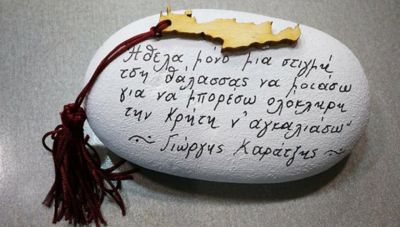 Ἤθελα μόνο μια στιγμή
τση θάλασσας να μοιάσω
για να μπορέσω ολόκληρη
την Κρήτη ν' αγκαλιάσω
~ Γιώργης Καράτζης ~